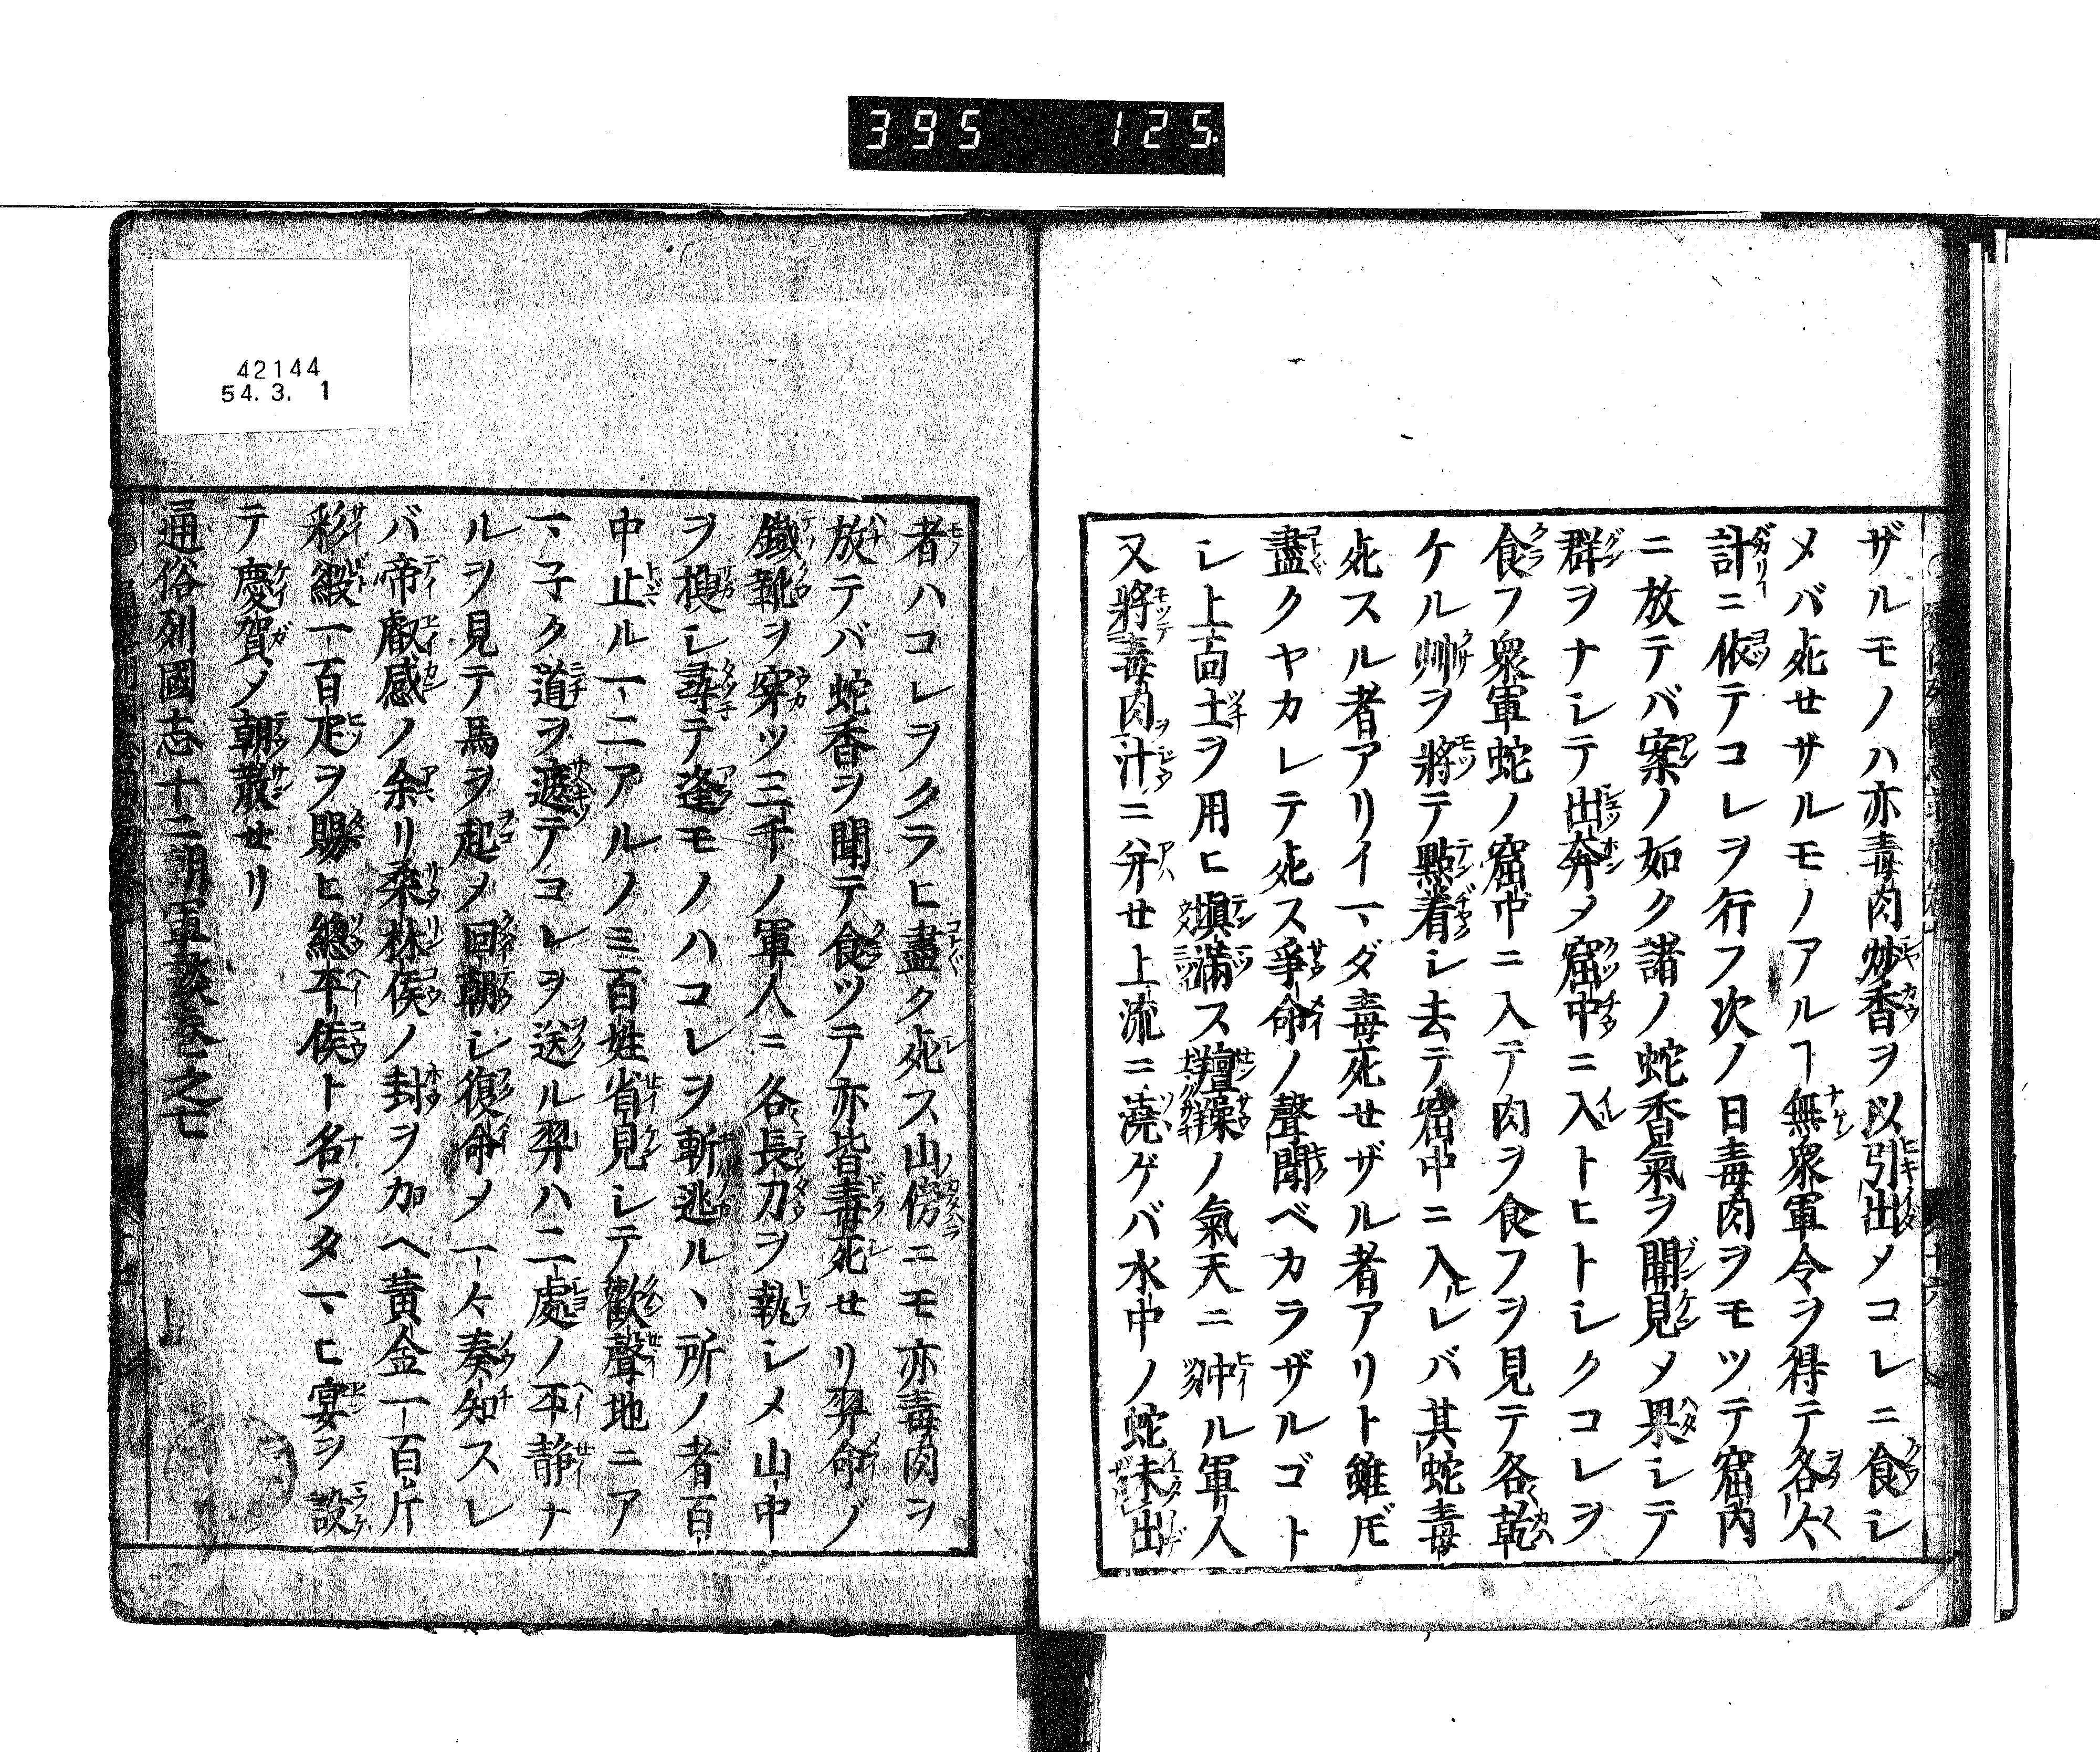 395 125.
ザルモノハ亦毒肉炒香ヲ以引出メコレニ食シ
メバ死セザルモノアルヿ無衆軍令ヲ得テ各々
計ニ依テコレヲ行フ次ノ日毒肉ヲモツテ窟内
ニ放テバ案ノ如ク諸ノ蛇香氣ヲ聞見メ果シテ
群ヲナシテ出奔メ窟中ニ入トヒトシクコレヲ
食フ衆軍蛇ノ窟中ニ入テ肉ヲ食フヲ見テ各乾
ケル艸ヲ將テ點着シ去テ窟中ニ入レバ其蛇毒
死スル者アリイマダ毒死せザル者アリト雖𪜈
盡クヤカレテ死ス爭命ノ聲聞ベカラザルゴト
シ上面土ヲ用ヒ塡滿ス羶臊ノ氣天ニ沖ル軍人
又將毒肉汁ニ幷せ上流ニ澆ゲバ水中ノ蛇未出
42144
54.3. 1
者ハコレヲクラヒ盡ク死ス山傍ニモ亦毒肉ヲ
放テバ蛇香ヲ聞テ食ツテ亦皆毒死せリ羿命ノ
鐵靴ヲ穿ツ三千ノ軍人ニ各長刀ヲ執シメ山中
ヲ搜シ尋テ逢モノハコレヲ斬逃ルヽ所ノ者百
中止ル一二アルノミ百姓省見シテ歡聲地ニア
マ子ク道ヲ遮テコレヲ送ル羿ハ二處ノ平静ナ
ルヲ見テ馬ヲ起メ回朝シ復命メ一々奏知スレ
バ帝叡感ノ余リ桑林侯ノ封ヲ加ヘ黄金一百斤
彩緞一百疋ヲ賜ヒ總平侯ト名ヲタマヒ宴ヲ設
テ慶賀メ朝散せリ
通俗列國志十二朝軍談卷之七